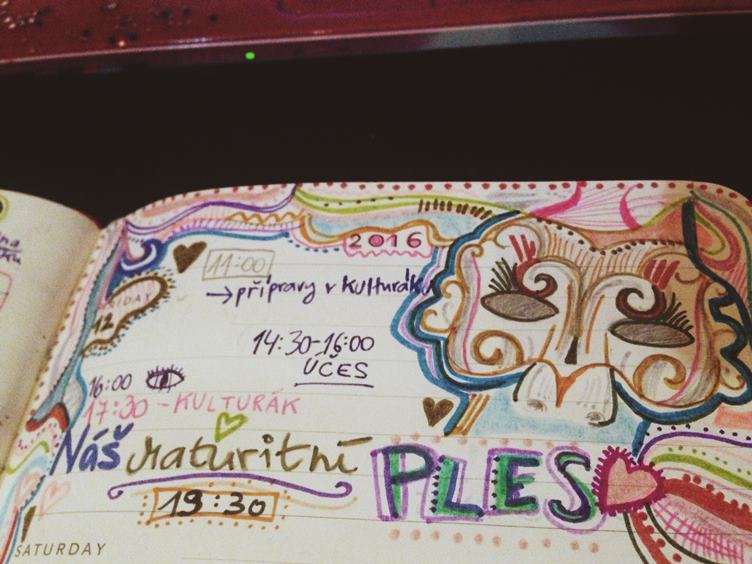 2016
11:00
→přípravy v kulturáku
FRIDAY
12
14:30-16:00
ÚČES
16:00
17:30 - KULTURÁK
Náš maturitní PLES
19:30
SATURDAY